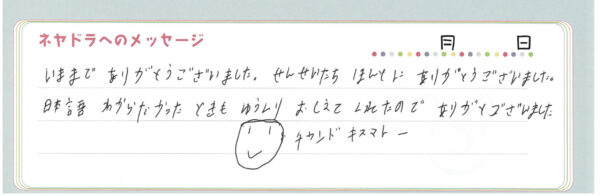 ネヤドラへのメッセージ
月 日
いままで ありがとうございました。せんせいたち ほんとに ありがとうございました。
日本語 わからなかった ときも ゆっくり おしえて くれたので ありがとございました
キスマトー